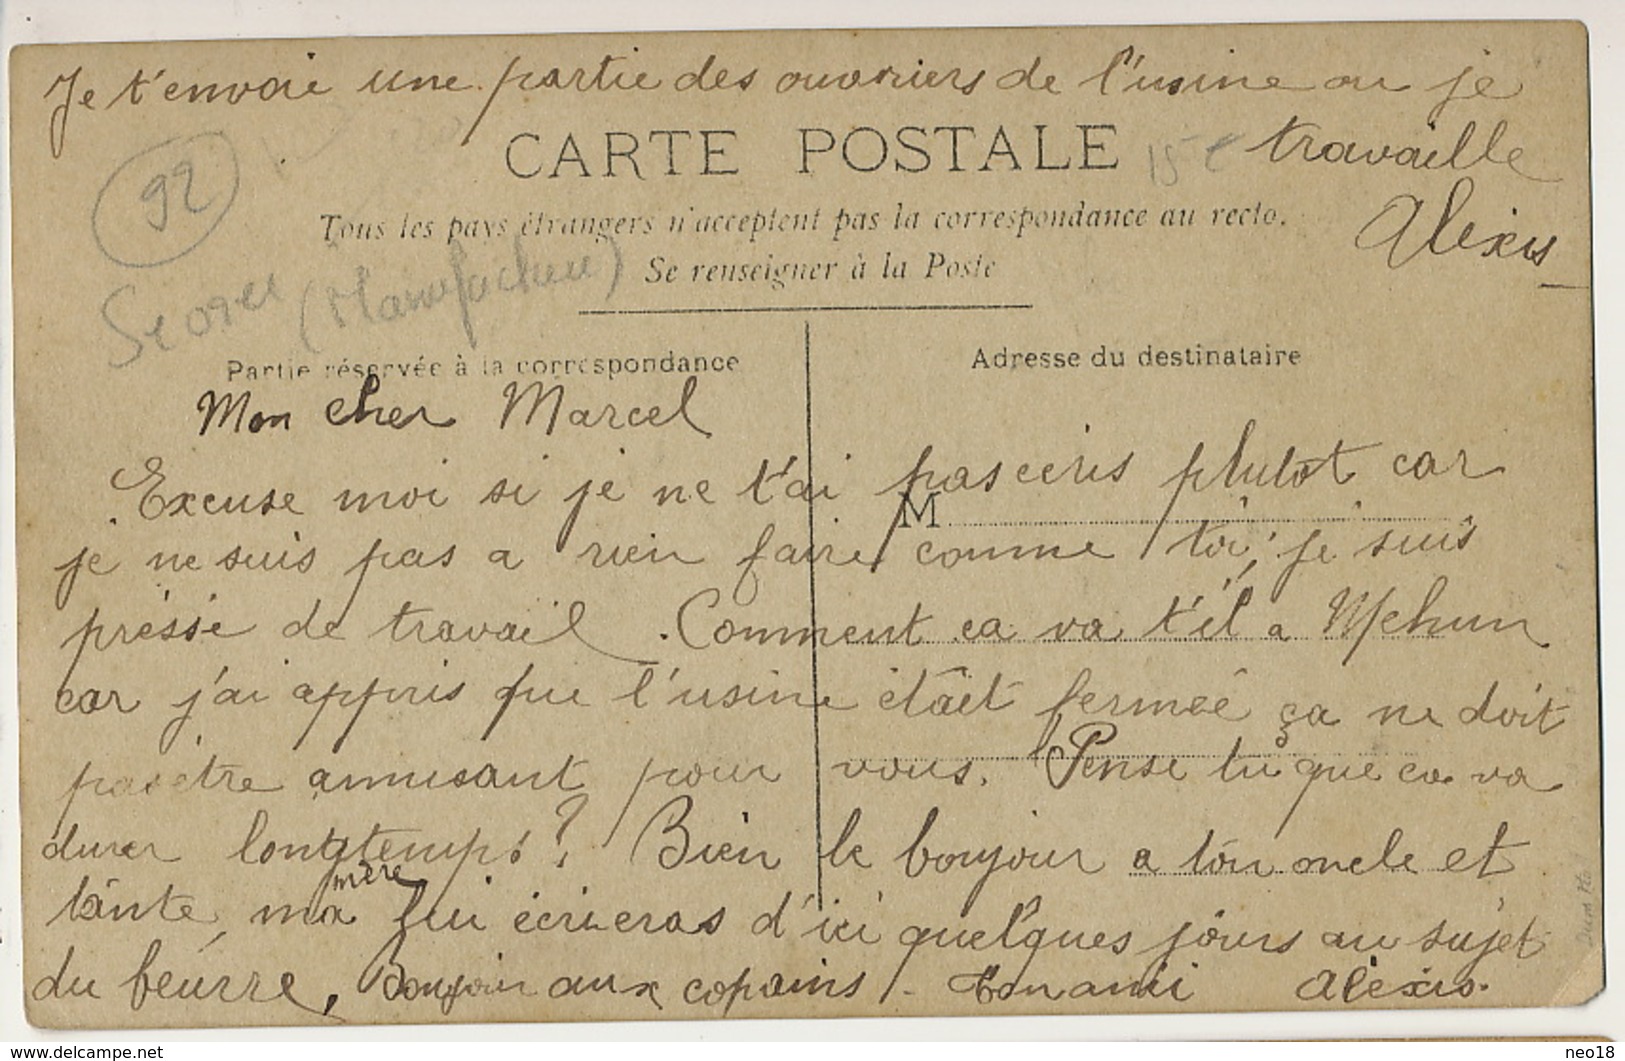 Je t'envoie une partie des ouvriers de l'usine ou je
travaille
Alexis
CARTE POSTALE
15 €
92
Tous les pays étrangers n'acceptent pas la correspondance au recto.
Se renseigner à la Poste
(Manufacture)
Partie réservée à la correspondance
Adresse du destinataire
Mon cher Marcel
Excuse moi si je ne t'ai pas ecris plutôt car
M
je ne suis pas a rien faire comme toi, je suis
préssé de travail. Comment ca va t'il a Mehun
car j'ai appris que l'usine étäit fermée ça ne doit
pas être amusant pour vous. Pense tu que ca va
durer longtemps? Bien le bonjour a ton oncle et
tante, ma mère lui écrieras d'ici quelques jours au sujet
du beurre, Bonjour aux copains. ton ami Alexis.
delcampe.net
neo18